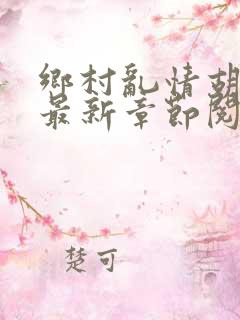 鄉村亂情胡
最新章節閱
楚可